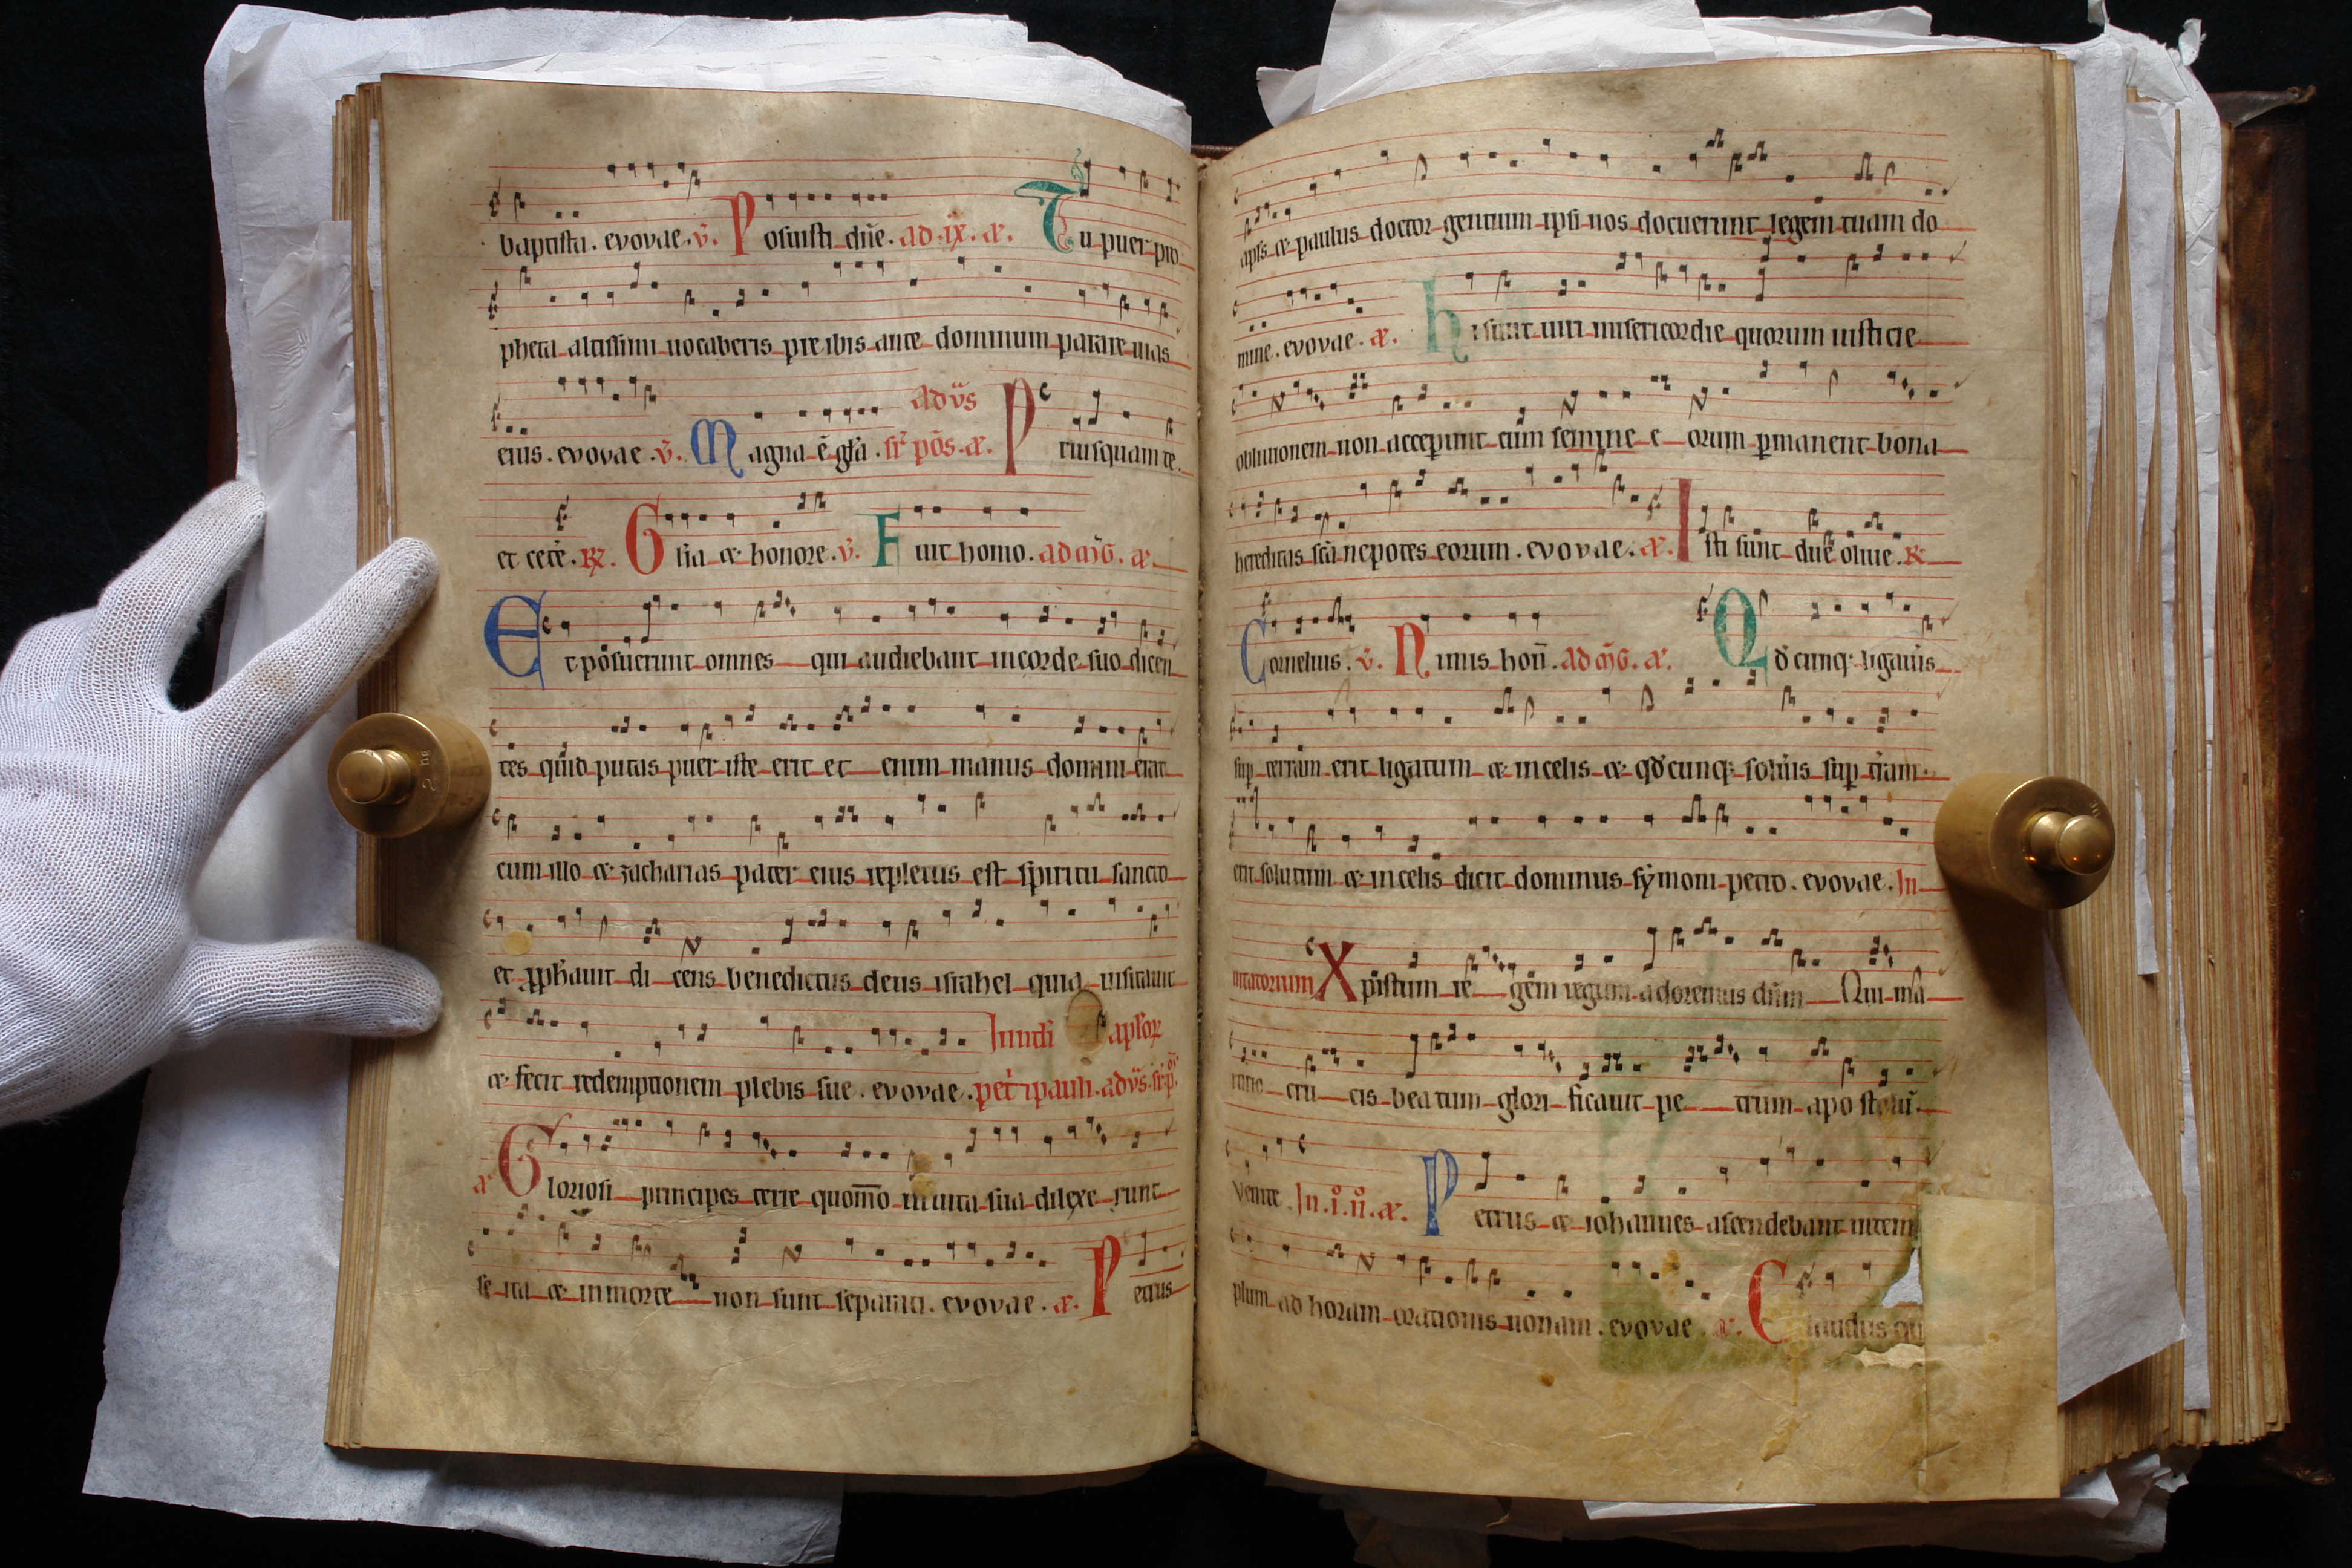 baptista. evovae. v̄. Posuisti dn̄e. ad. ix. æ. Tu puer pro
pheta altissimi uocaberis preibis ante dominum parare uias
eius. evovae. v̄. Magna ē gl̄a. sr̄ pōs. æ. ad vs̄ Priusquam te
et cetē. ꝶ. Glīa æ honore. v̄. Fuit homo. ad mḡ. æ.
Et pōsuerunt omnes qui audiebant in corde suo dicen
tes quid putas puer iste erit et enim manus domini erat
cum illo æ zacharias pater eius repletus est spiritu sancto
et pꝓhauit di cens benedictus deus israhel quia uisitauit
æ fecit redemptionem plebis sue. evovae. In nat̄ apl̄oꝝ
petˀ ꞇ pauli. ad vs̄. sr̄ p̄
æ Gloriosi principes terre quom̄o in uita sua dilexe runt
se ita æ in morte non sunt separati. evovae. æ. Petrus
apl̄s æ paulus doctor gentium ipsi nos docuerunt legem tuam do
mine. evovae. æ. hi sunt uiri misericordie quorum iusticie
obliuionem non acceperunt cum semine e orum ꝑmanent bona
hereditas sc̄a nepotes eorum. evovae. æ. Isti sunt due oliue. ꝶ
Cornelius. v̄. Nimis hon̄. ad mḡ. æ. Qd̄ cunqꝫ ligaūis
suꝑ terram erit ligatum æ in celis æ qd̄cunqꝫ soluīs suꝑ tr̄am
erit solutum æ in celis dicit dominus sẏmoni petro. evovae. In
uitatorium Xpīstum re gem regum adoremus dn̄m Qui ma
ritio cru cis beatum glori ficauit pe trum apo stolū.
Venite. In. i. n̄. æ. Petrus æ iohannes ascendebant in tem
plum ad horam orationis nonam. evovae. æ. Claudus qu